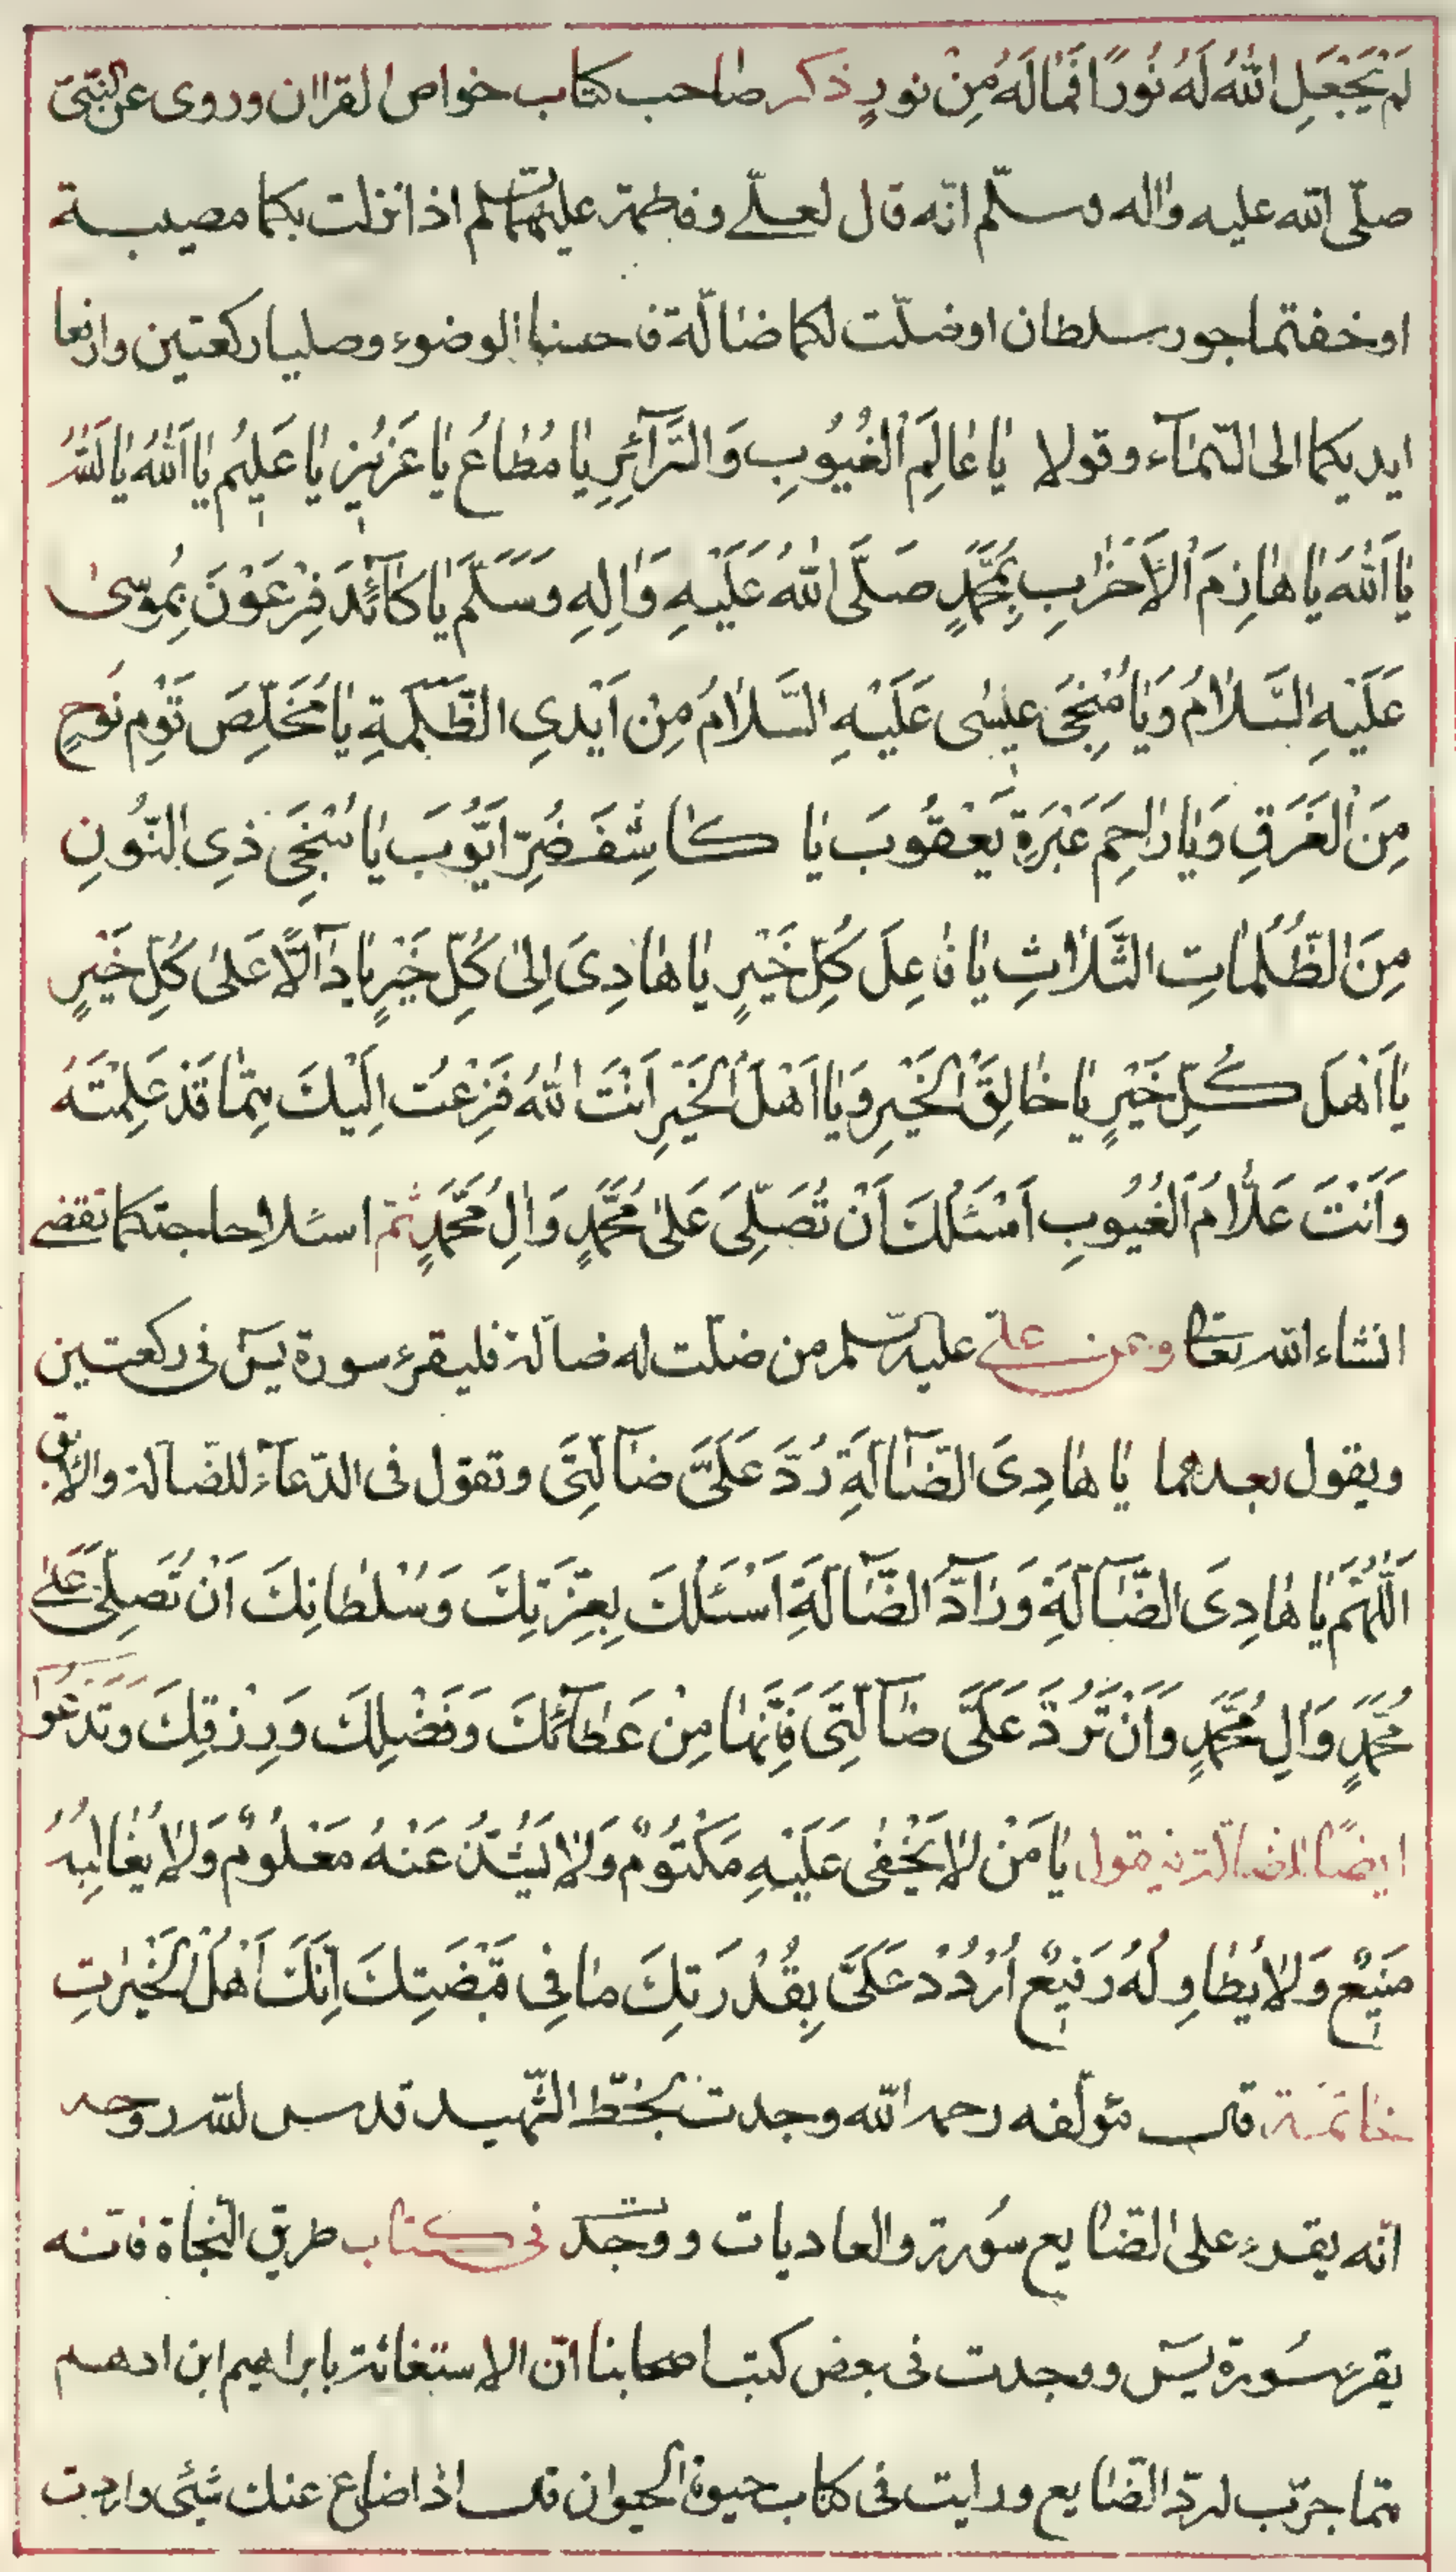 لَمْ يَجْعَلِ اللّٰهُ لَهُ نُورًا فَمَا لَهُ مِنْ نورٍ ذكر صاحب كتاب خواص القراان وروى عن النّبىّ
صلّى اللّه عليه واله وسلّم انّه قال لعلى وفاطمة عليهما السلم اذا نزلت بكما مصيبة
او خفتما جور سلطان او ضلّت لكما ضالّة فاحسنا الوضوء وصليا ركعتين وارفعا
ايديكما الى السّمآء وقولا يا عالِمَ الْغُيُوبِ وَالسَّرآئِرِ يا مُطاعُ يا عَزيزُ يا عَليمُ يا اَللّٰهُ يا اَللّٰهُ
يا اَللّٰهُ يا هازِمَ الْاَحْزابِ بِمُحَمَّدٍ صَلَّى اللّٰهُ عَلَيْهِ وَالِهِ وَسَلَّمَ يا كآئِدَ فِرْعَوْنَ بِمُوسىٰ
عَلَيْهِ السَّلامُ وَيا مُنْجِىَ عيسٰى عَلَيْهِ السَّلامُ مِنْ اَيْدِى الظَّلَمَةِ يا مُخَلِّصَ قَوْمِ نُوحٍ
مِنَ الْغَرَقِ وَيا راحِمَ عَبْرَةِ يَعْقُوبَ يا كاشِفَ ضُرِّ اَيُّوبَ يا مُنْجِىَ ذِى النُّونِ
مِنَ الظُّلُماتِ الثَّلاثِ يا فاعِلَ كُلِّ خَيْرٍ يا هادِىَ اِلىٰ كُلِّ خَيْرٍ يا دآلًّا عَلىٰ كُلِّ خَيْرٍ
يا اَهْلَ كُلِّ خَيْرٍ يا خالِقَ الْخَيْرِ وَيا اَهْلَ الْخَيْرِ اَنْتَ اللّٰهُ فَزِعْتُ اِلَيْكَ مِمّا قَدْ عَلِمْتَهُ
وَاَنْتَ عَلّامُ الْغُيُوبِ اَسْئَلُكَ اَنْ تُصَلِّىَ عَلىٰ مُحَمَّدٍ وَالِ مُحَمَّدٍ ثمّ اسئلا حاجتكما تقضى
انشاء اللّه تعالى وعن على عليه السّلم من ضلّت له ضآلة فليقرء سورة يسٓ فى ركعتين
ويقول بعدهما يا هادِىَ الضّآلَّةِ رُدَّ عَلَىَّ ضآلَّتى وتقول فى الدّعآء للضّآلة والابق
اَللّٰهُمَّ يا هادِىَ الضّآلَّةِ وَرآدَّ الضّآلَّةِ اَسْئَلُكَ بِعِزَّتِكَ وَسُلْطانِكَ اَنْ تُصَلِّىَ عَلىٰ
مُحَمَّدٍ وَالِ مُحَمَّدٍ وَاَنْ تَرُدَّ عَلَىَّ ضآلَّتى فَاِنَّها مِنْ عَطآئِكَ وَفَضْلِكَ وَرِزْقِكَ وتدعوا
ايضًا للضآلة فيقول يا مَنْ لا يَخْفٰى عَلَيْهِ مَكْتُومٌ وَلا يَشُذُّ عَنْهُ مَعْلُومٌ وَلا يُغالِبُهُ
مَنيعٌ وَلا يُطاوِلُهُ رَفيعٌ اُرْدُدْ عَلَىَّ بِقُدْرَتِكَ ما فى قَبْضَتِكَ اِنَّكَ اَهْلُ الْخَيْراتِ
خاتمة قال مؤلّفه رحمه اللّه وجدت بخطّ الشّهيد قدس اللّه روحه
انّه يقرء على الضّايع سُورة والعاديات ووجدت فى كتاب طريق النّجاة فانّه
يقرء سُورة يسٓ ووجدت فى بعض كتب اصحابنا انّ الاستغاثة بابراهيم ابن ادهم
ممّا جرّب لردّ الضّايع ورايت فى كتاب حيوة الحيوان قال اذا ضاع عنك شئى واردت